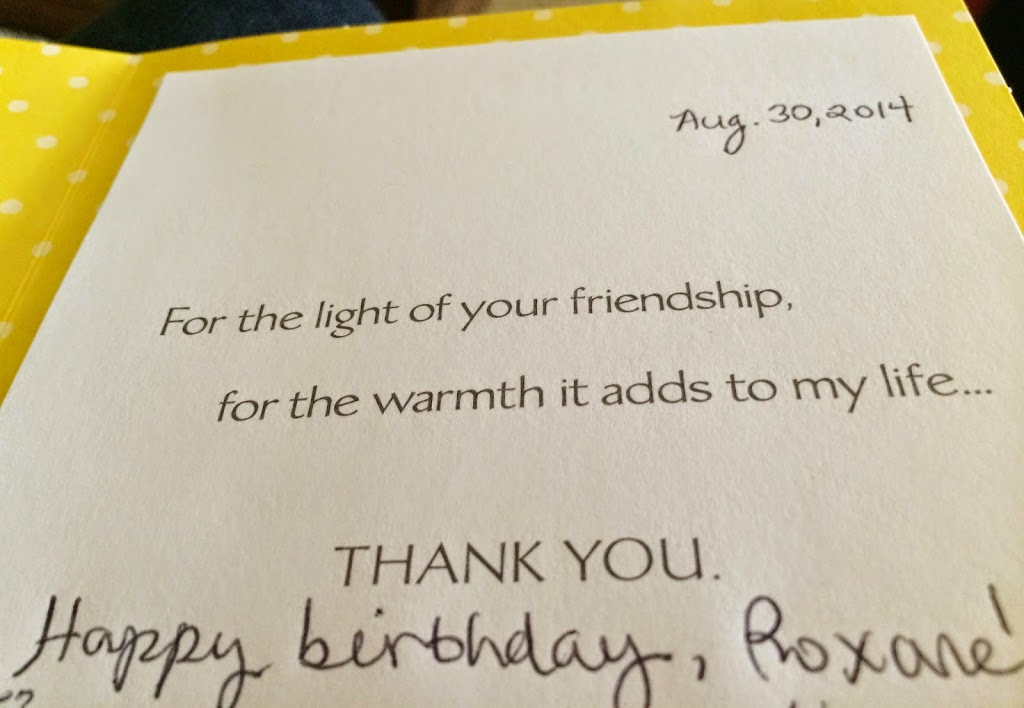 Aug. 30, 2014
For the light of your friendship,
for the warmth it adds to my life...
THANK YOU.
Happy birthday, Roxane!